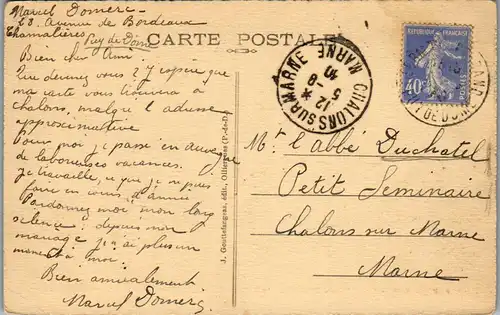 Marcel Domerc
28. Avenue de Bordeaux
Chamalières Puy de Dôme
CARTE POSTALE
Bien cher Ami.
Que devenez vous ? J'espère que
ma carte vous trouvera à
Chalons, malgré l'adresse
approximative
Pour moi je passe en Auvergne
de laborieuses vacances.
Je travaille, ce que je ne puis
faire en cours d'année
Pardonnez moi mon long
silence: depuis mon
mariage je n'ai plus un
moment à moi.
Bien amicalement.
Marcel Domerc
J. Gouttefangeas, édit., Olliergues (P.-de-D.)
CHALONS SUR MARNE
MARNE
12 *
5 - 8
40
REPUBLIQUE FRANÇAISE
40c
POSTES
PUY DE DOME
Mr l'abbé Duchatel
Petit Seminaire
Chalons sur Marne
Marne